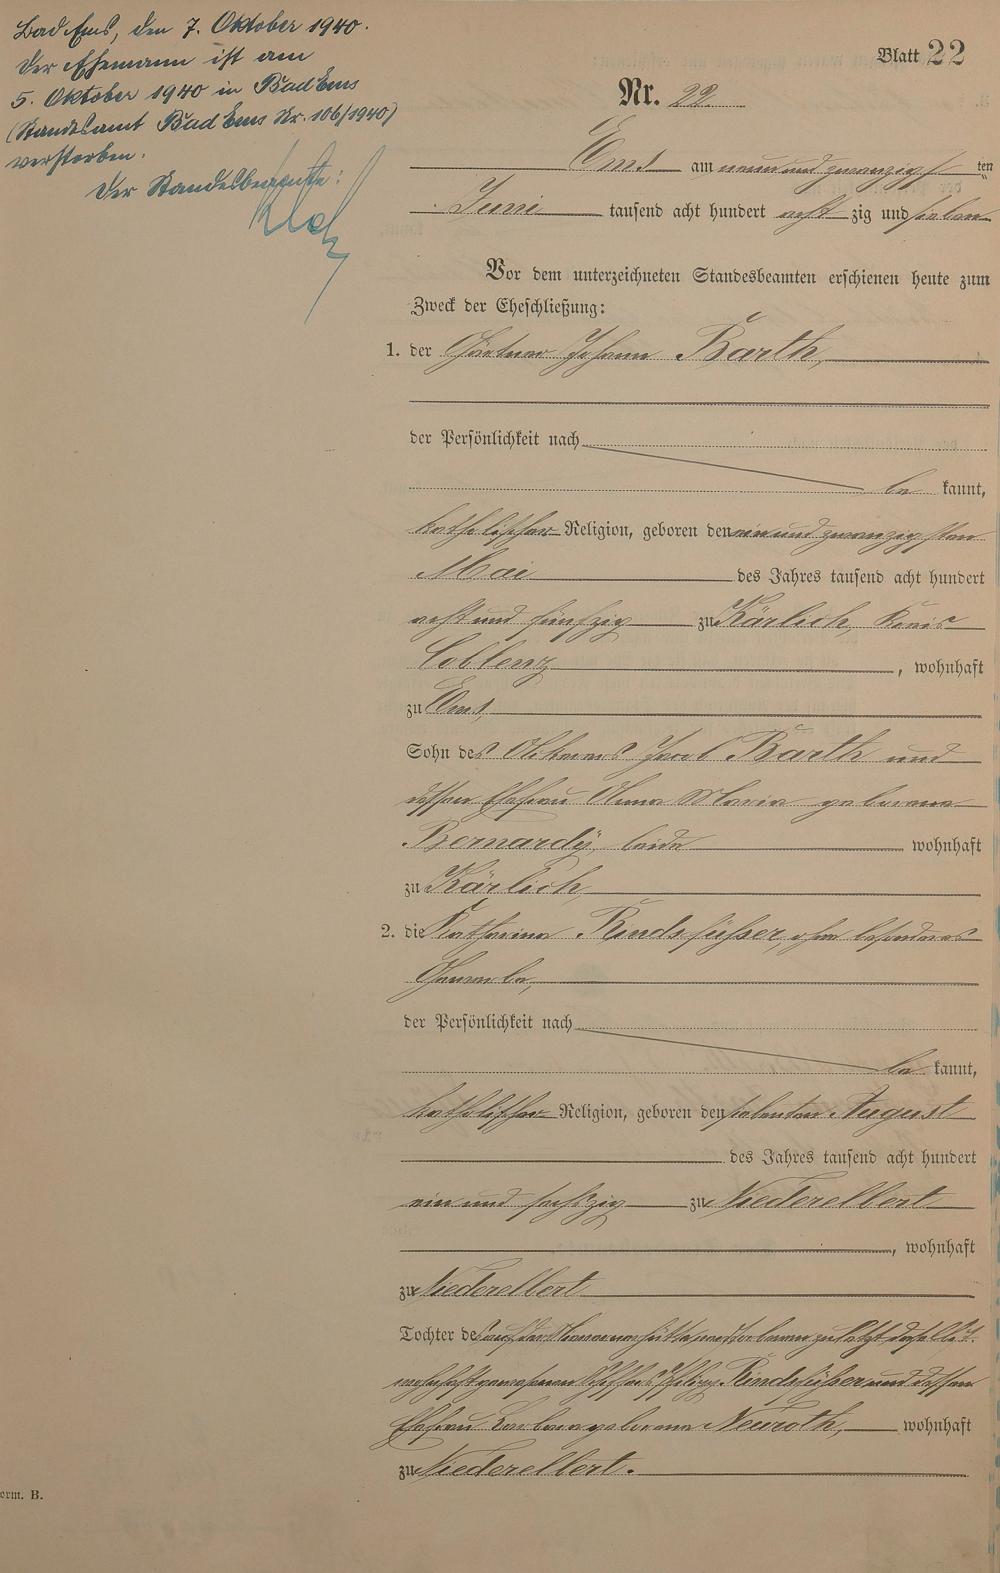 Bad Ems, den 7. Oktober 1940.
Der Ehemann ist am
5. Oktober 1940 in Bad Ems
(Standesamt Bad Ems Nr. 106/1940)
verstorben.
Der Standesbeamte:
Blatt 22
Nr. 22.
Ems am neun und zwanzigsten
Juni tausend acht hundert acht zig und sieben
Vor dem unterzeichneten Standesbeamten erschienen heute zum
Zweck der Eheschließung:
1. der Gärtner Johann Barth,
der Persönlichkeit nach
be kannt,
katholischer Religion, geboren den ein und zwanzigsten
Mai des Jahres tausend acht hundert
acht und fünfzig zu Kärlich, Kreis
Coblenz, wohnhaft
zu Ems,
Sohn des Ackerers Jacob Barth und
dessen Ehefrau Anna Maria geborene
Bernardy, beide wohnhaft
zu Kärlich,
2. die Katharina Rindsfüsser, ohne besonderes
Gewerbe,
der Persönlichkeit nach
be kannt,
katholischer Religion, geboren den siebenten August
des Jahres tausend acht hundert
ein und sechszig zu Niederelbert
, wohnhaft
zu Niederelbert
Tochter des auf der verstorbenen zuletzt daselbst
wohnhaft gewesenen Rindsfüsser und dessen
Ehefrau Barbara geborene Neuroth, wohnhaft
zu Niederelbert.
orm. B.